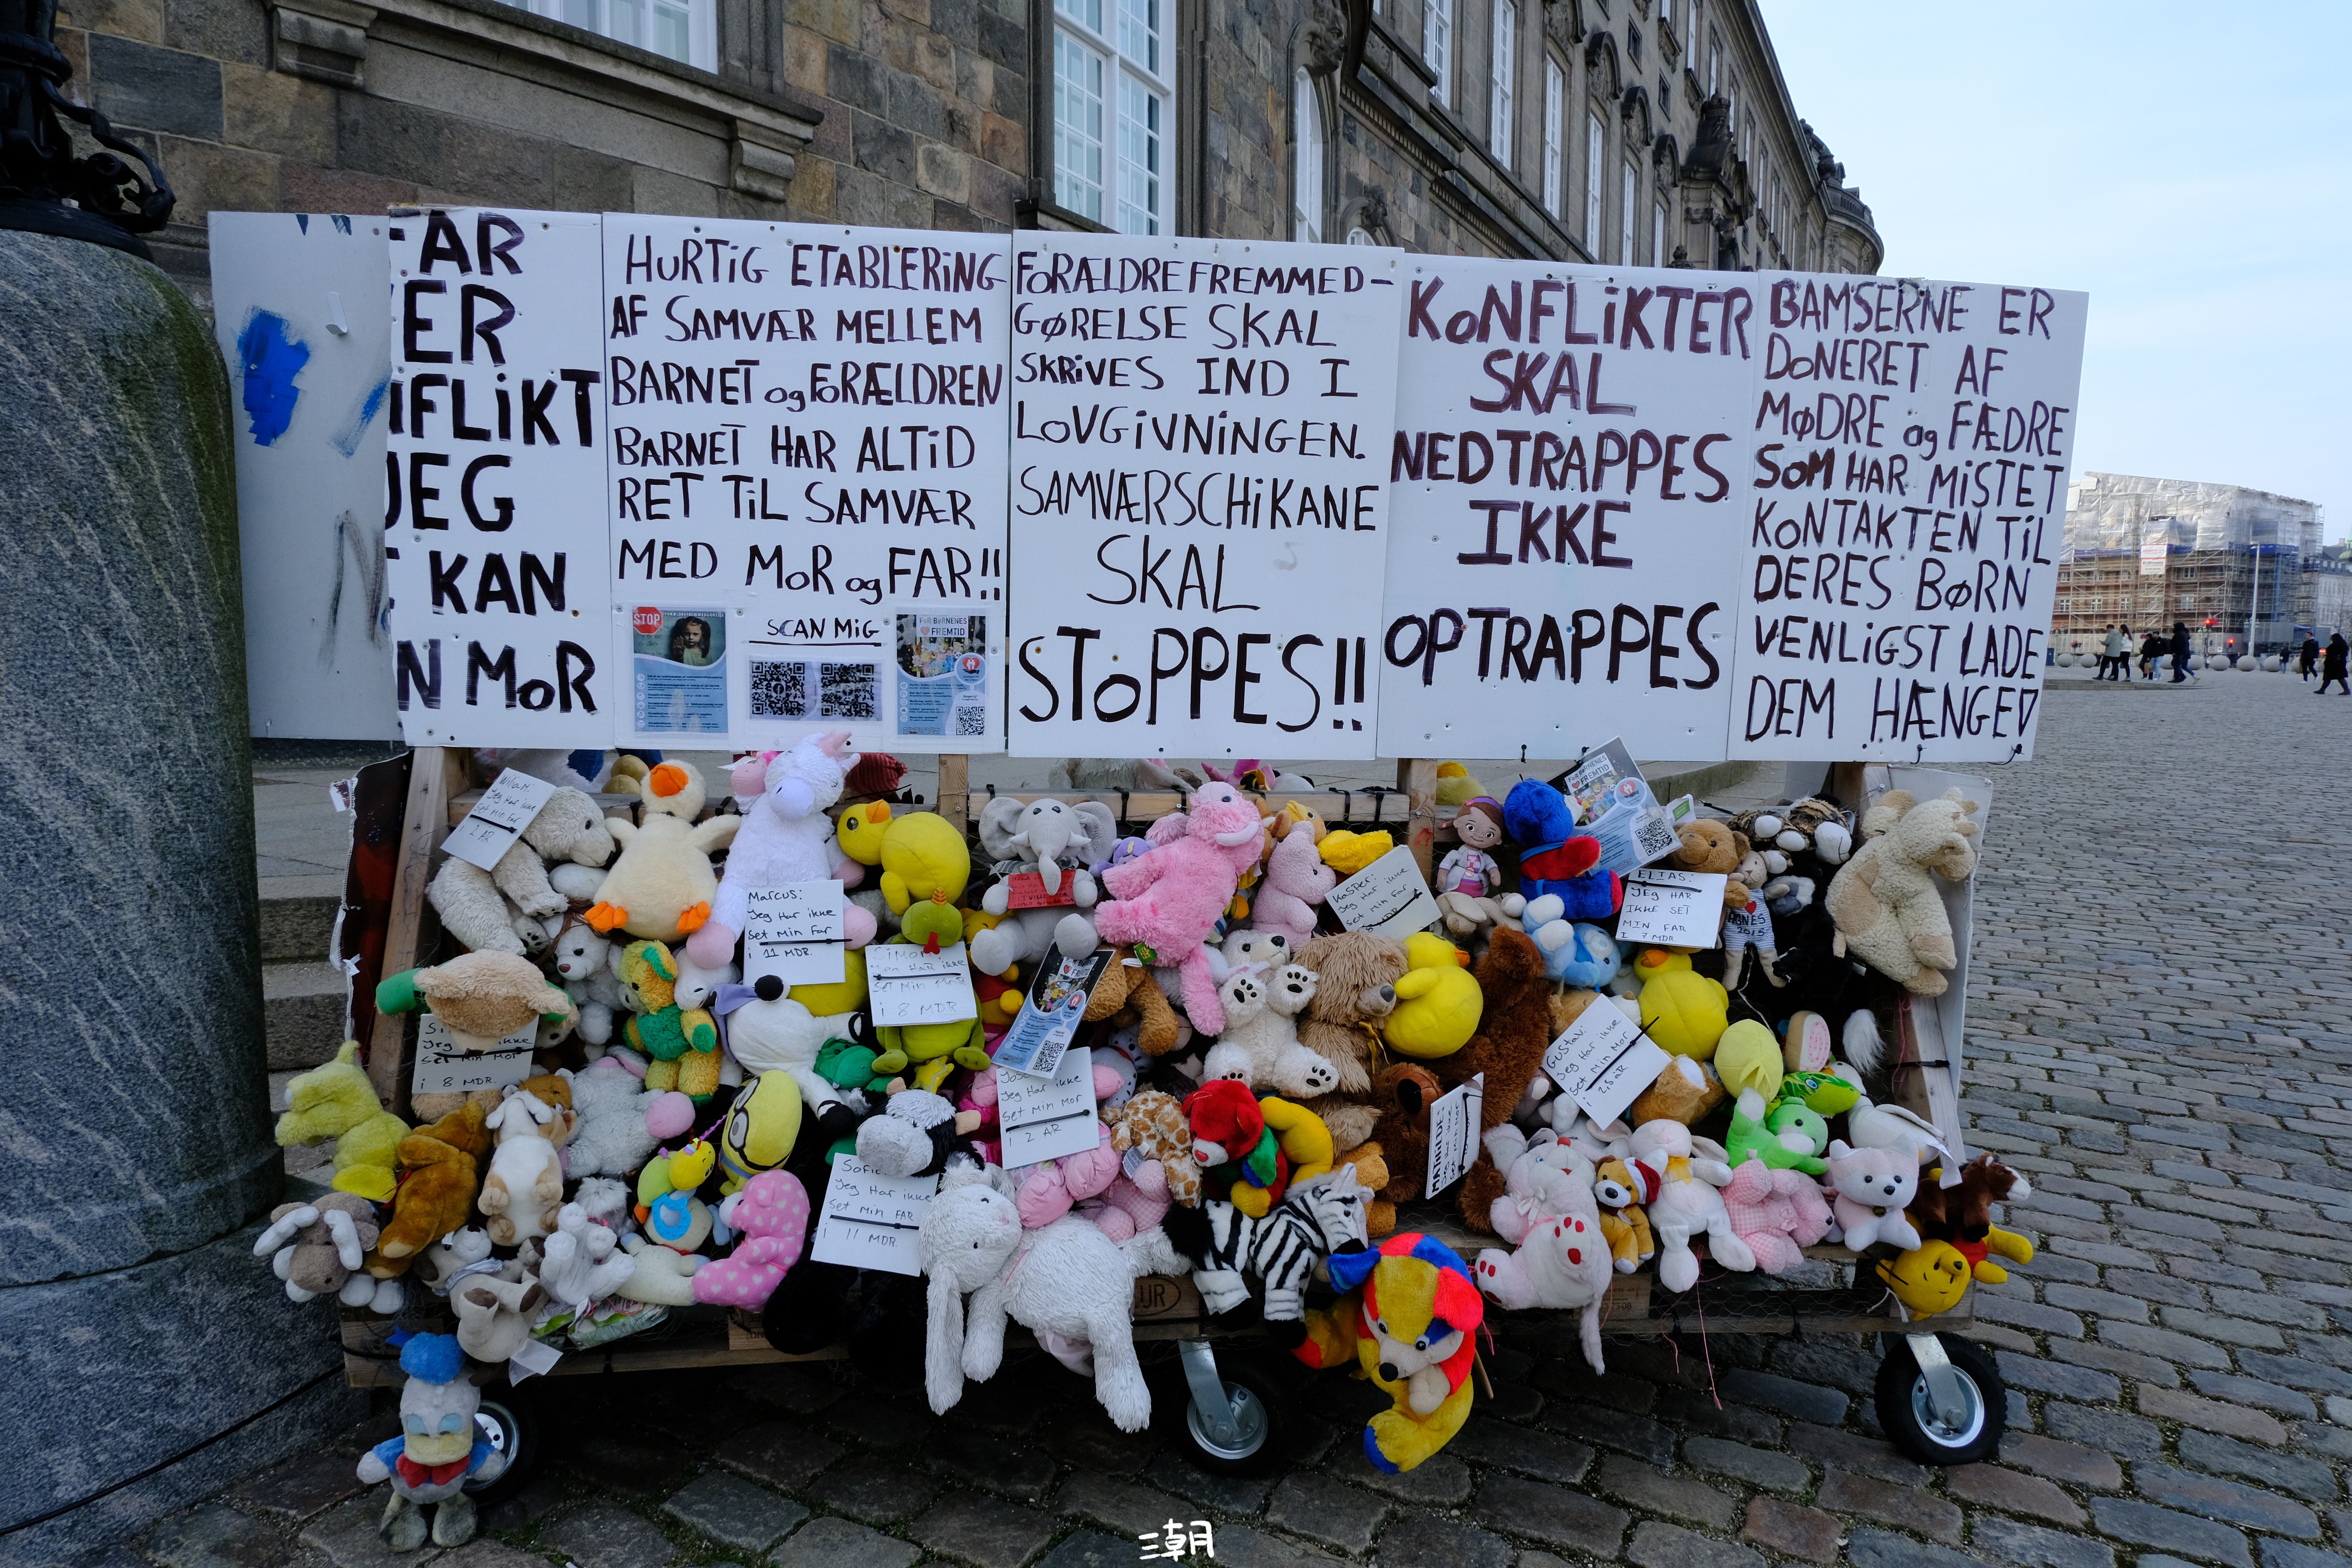 FAR
ER
FLIKT
JEG
KAN
N MOR
HURTIG ETABLERING
AF SAMVÆR MELLEM
BARNET og FORÆLDREN
BARNET HAR ALTID
RET TIL SAMVÆR
MED MOR og FAR!!
SCAN MIG
STOP
FOR BØRNENES
FREMTID
FORÆLDREFREMMED-
GØRELSE SKAL
SKRIVES IND I
LOVGIVNINGEN.
SAMVÆRSCHIKANE
SKAL
STOPPES!!
KONFLIKTER
SKAL
NEDTRAPPES
IKKE
OPTRAPPES
BAMSERNE ER
DONERET AF
MØDRE og FÆDRE
SOM HAR MISTET
KONTAKTEN TIL
DERES BØRN
VENLIGST LADE
DEM HÆNGE
Jeg Har ikke
set Min Far
i 2 ÅR
Marcus:
Jeg Har ikke
set Min Far
i 11 MDR.
Har ikke
set Min
i 8 MDR
Kasper:
Jeg Har ikke
set Min Far
FOR BØRNENES
FREMTID
ELIAS:
JEG HAR
IKKE SET
MIN FAR
I 7 MDR.
AGNES
2015
Jeg ikke
set Min Mor
i 8 MDR.
Jeg Har ikke
set Min Mor
i 2 ÅR
GUSTAV:
Jeg Har ikke
set Min Mor
i 2,5 ÅR
MATHILDE:
Sofie
Jeg Har ikke
set Min FAR
i 11 MDR.
三朝